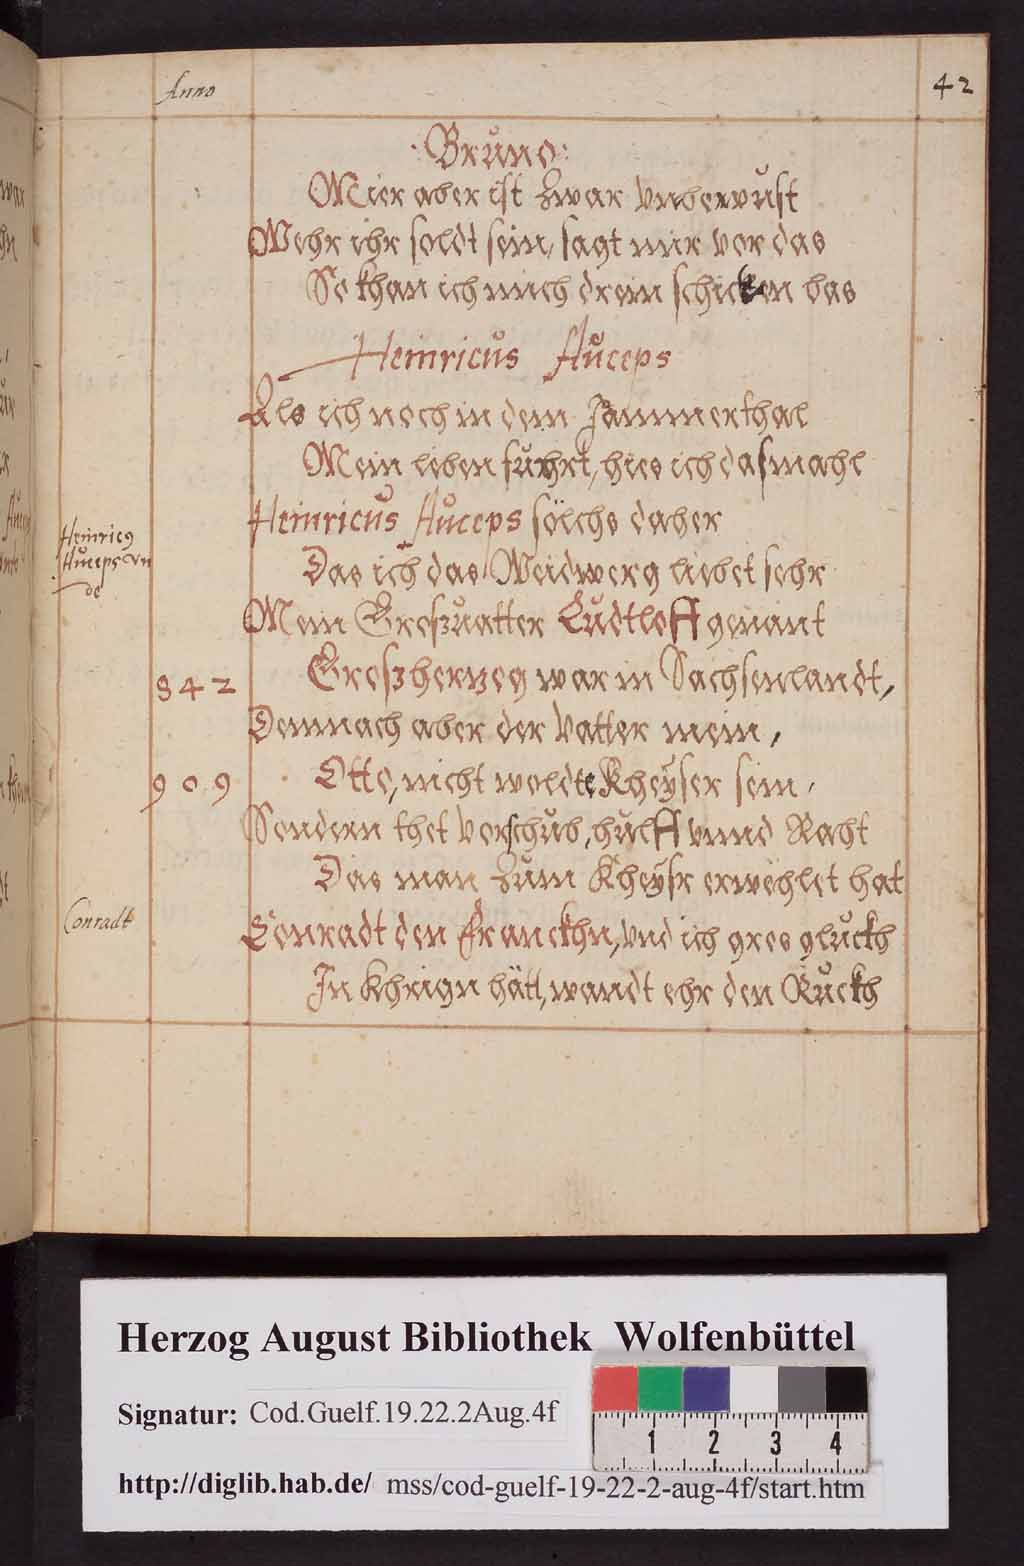 Anno
42
·Bruno:
Mier aber ist zwar vnbewust
Wehr ihr soldt sein, sagt mir vor das
So khan ich mich drein schicken bas
Heinricus Auceps
Als ich noch in dem Jammerthal
Mein leben fuhrt, hies ich dasmahl
Heinricus Auceps sölchs daher
Das ich das Weidwerg liebet sehr
Mein Groszuatter Ludtloff genant
Groszherzog war in Sachsenlandt,
Demnach aber der Vatter mein,
Otto, nicht woldte Kheyser sein,
Sondern thet vorschub, hulff vnnd Raht
Das man zum Kheysr erwehlet hat
Conradt den Franckhn, vnd ich gros gluckh
In Khrign hätt, wandt ehr den Ruckh
Heinricg
Auceps vn
de
842
909
Conradt
Herzog August Bibliothek Wolfenbüttel
Signatur: Cod.Guelf.19.22.2Aug.4f
1 2 3 4
http://diglib.hab.de/ mss/cod-guelf-19-22-2-aug-4f/start.htm